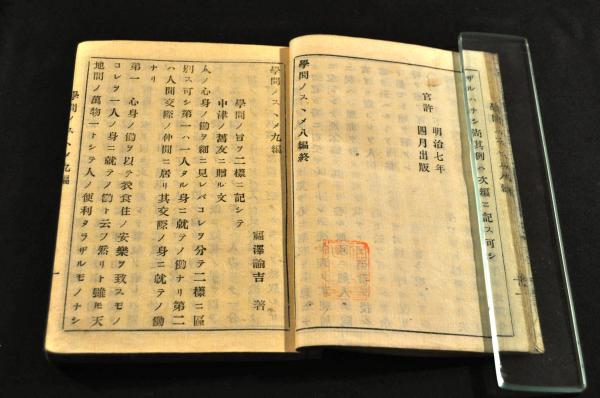 ザルハナシ尚其例ハ次編ニ記ス可シ
學問ノスヽメ八編終
明治七年
官許 四月出版
學問ノスヽメ九編
學問ノ旨ヲ二樣ニ記シテ
中津ノ舊友ニ贈ル文
福澤諭吉 著
人ノ心身ノ働ヲ細ニ見レバコレヲ分テ二樣ニ區
別ス可シ第一ハ一人タル身ニ就テノ働ナリ第二
ハ人間交際ノ仲間ニ居リ其交際ノ身ニ就テノ働
ナリ
第一 心身ノ働ヲ以テ衣食住ノ安樂ヲ致スモノ
コレヲ一人ノ身ニ就テノ働ト云フ然リト雖ㇳモ天
地間ノ萬物一トシテ人ノ便利タラザルモノナシ
學問ノスヽメ九編
一